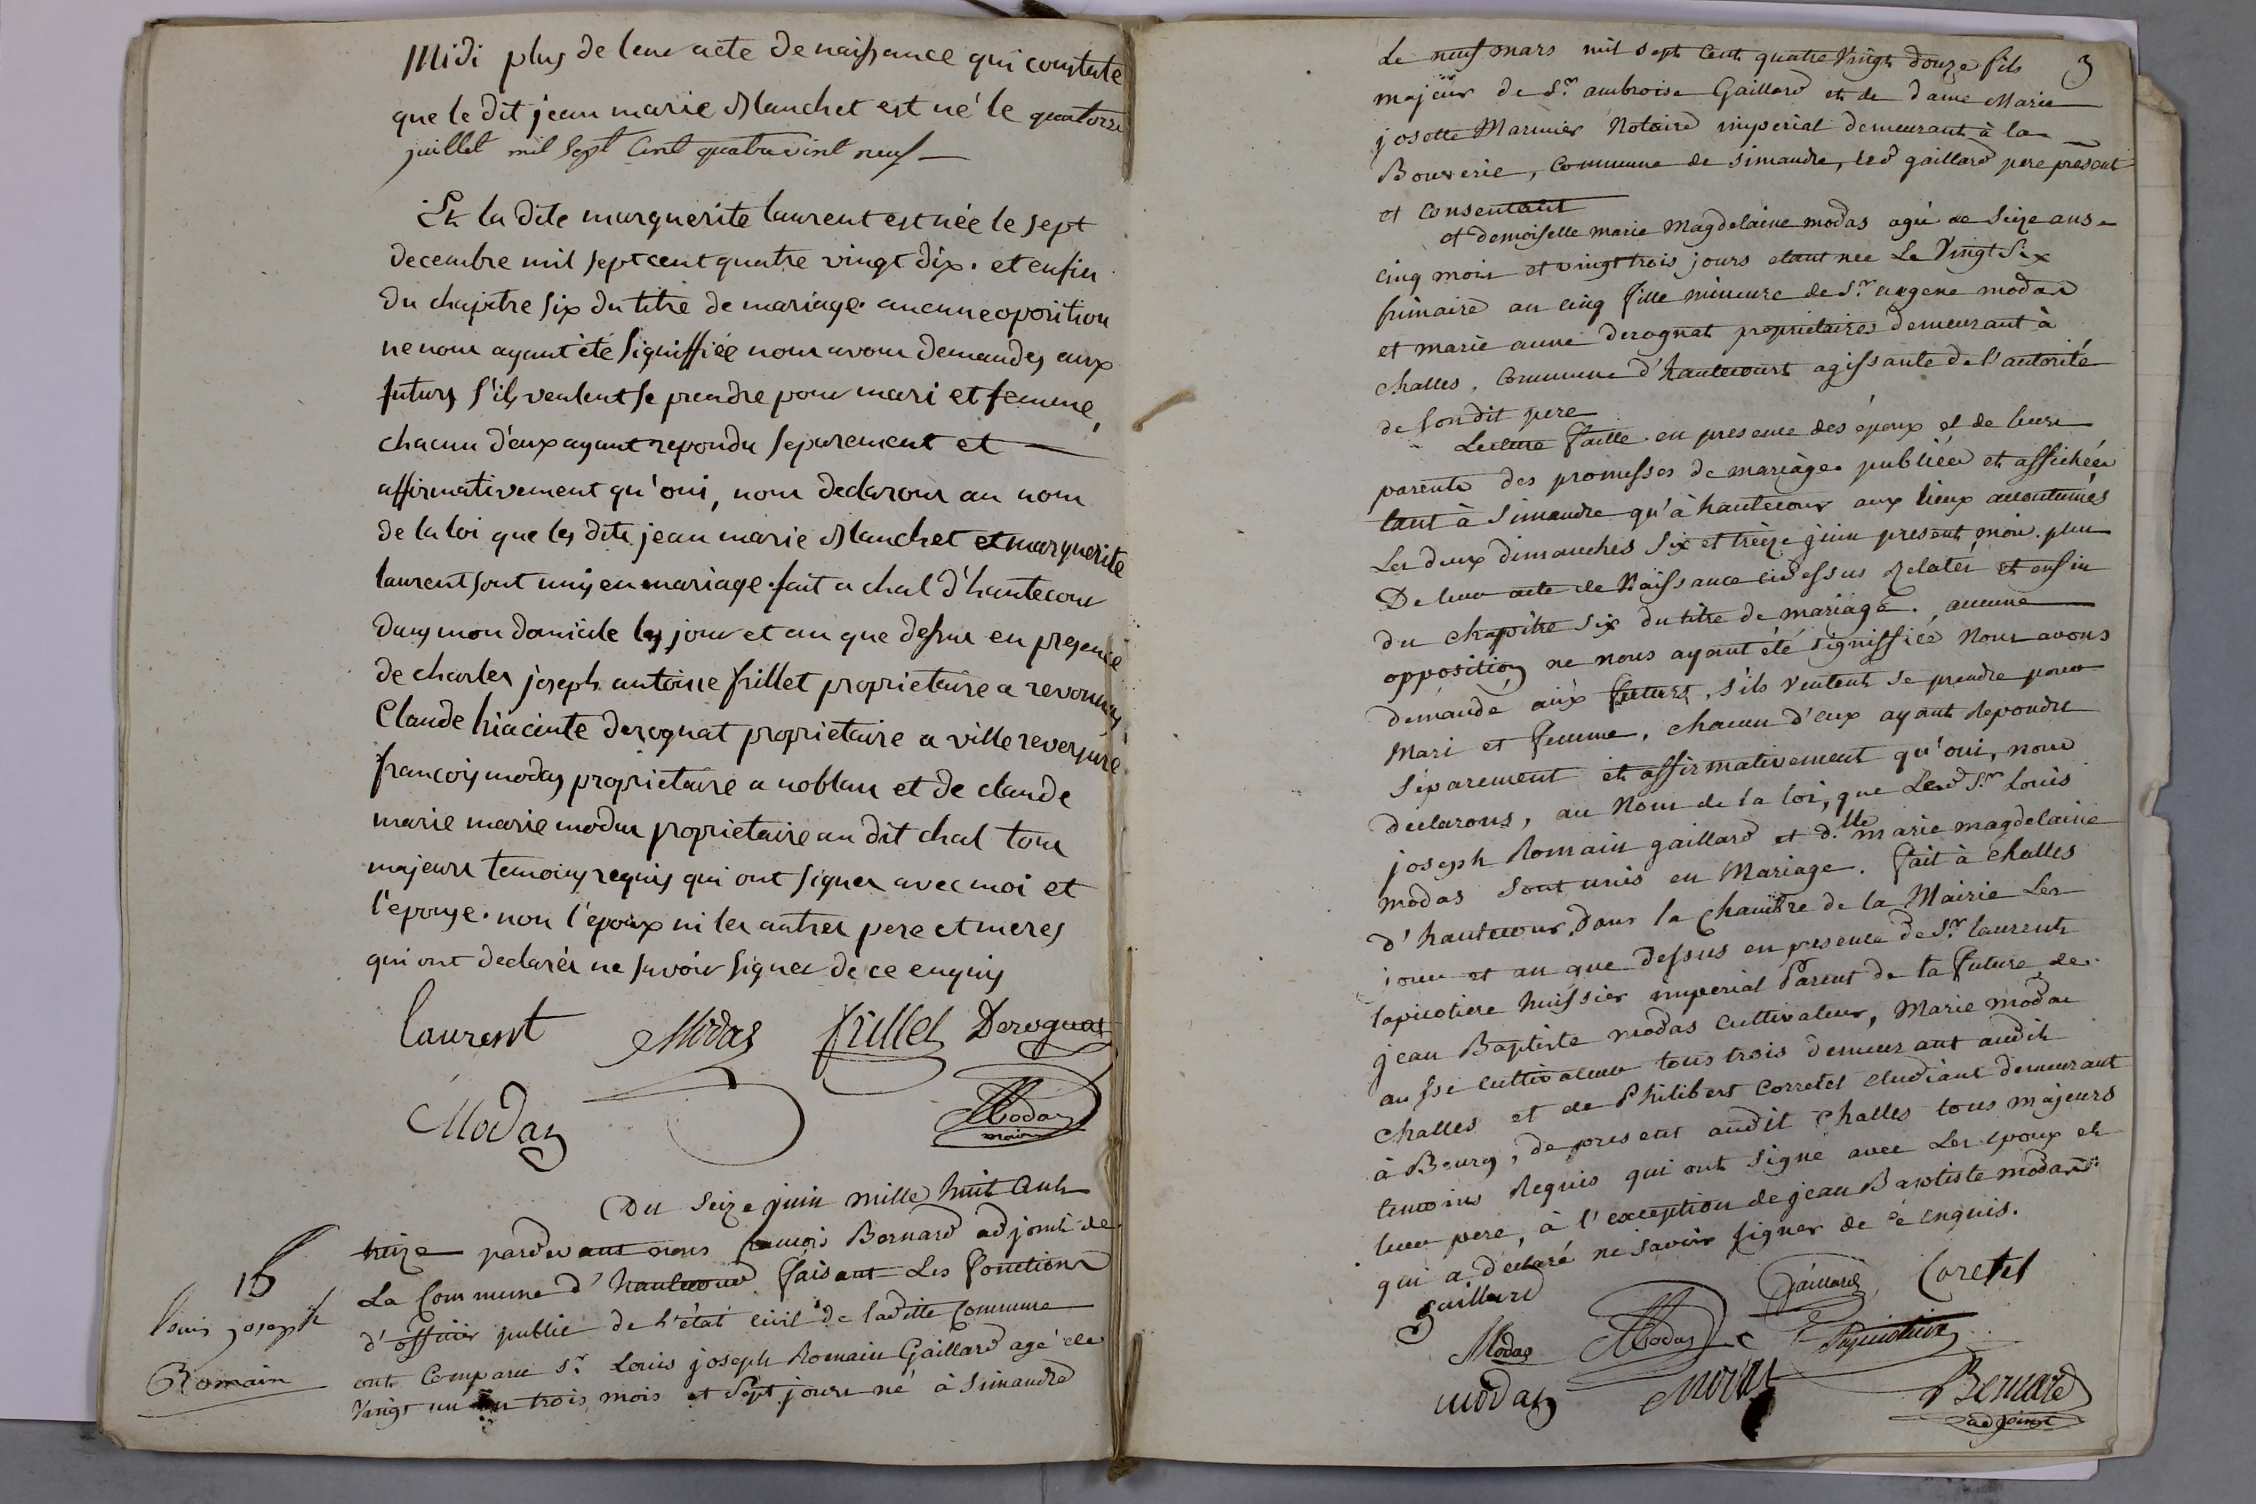 Midi plus de leur acte de naissance qui constate
que le dit jean marie Blanchet est né le quatorze
juillet mil sept cent quatrevint neuf
Et la dite marguerite laurent est née le sept
decembre mil sept cent quatre vingt dix. et enfin
du chapitre six du titre de mariage. aucune oposition
ne nous ayant été signiffiée nous avons demandes aux
futurs s'ils veulent se prendre pour mari et femme,
chacun d'eux ayant repondu separement et
affirmativement qu'oui, nous declarons au nom
de la loi que les dits jean marie Blanchet et marguerite
laurent sont unis en mariage. fait a chal d'hautecour
dans mon domicile les jour et an que dessus en presence
de charles joseph antoine frillet proprietaire a revonnas,
Claude hiacinte derognat proprietaire a ville reversure
françois modas proprietaire a noblan et de claude
marie marie modas proprietaire au dit chal tous
majeurs temoins requis qui ont signer avec moi et
l'epouse. non l'epoux ni les autres pere et meres
qui ont declarés ne savoir signer de ce enquis
laurent Modas frillet Derognat
Modas Modas
maire
Du seize juin mille huit cent
treize pardevant nous françois Bernard adjoint de
La Commune d'hautecour faisant Les fonctions
d'officier public de l'état civil de laditte Commune
ont Comparu Sr. Louis joseph Romain Gaillard agé de
Vingt un an trois mois et sept jours né à Simandre
15
louis joseph
Romain
3
Le neuf mars mil sept cent quatre Vingt douze fils
majeur de Sr. ambroise Gaillard et de dame Marie
josette Marmier Notaire imperial demeurant à la
Bouverie, Commune de Simandre, led gaillard pere présent
et consentant
et demoiselle marie Magdelaine modas agée de seize ans
cinq mois et vingt trois jours etant née Le Vingt Six
frimaire an cinq fille mineure de Sr. eugene modas
et marie anne derognat proprietaires demeurant à
challes, Commune d'hautecourt agissante de l'autorité
de son dit pere
Lecture faitte en presence des époux et de leurs
parents des promesses de mariage publiées et affichées
tant à Simandre qu'à hautecour aux lieux accoutumés
Les deux dimanches six et treize juin present mois. plus
De leur acte de Naissance cidessus Relatés et enfin
du chapitre six du titre de mariage. aucune
opposition ne nous ayant été signiffiée Nous avons
démandé aux futurs, s'ils veulent se prendre pour
Mari et femme, chacun d'eux ayant Repondu
séparement et affirmativement qu'oui, nous
declarons, au Nom de la loi, que Led Sr. Louis
joseph Romain gaillard et dlle. marie magdelaine
modas sont unis en Mariage. fait à challes
d'hautecour, dans la Chambre de la Mairie Les
jour et an que dessus en presence de Sr. laurent
lapicotiere huissier imperial Parent de la future, de
jean Baptiste modas cultivateur, Marie modas
aussi cultivateur tous trois demeurant audit
challes et de Philibert Corretel etudiant demeurant
à Bourg, de present audit challes tous majeurs
temoins Requis qui ont signé avec Les epoux et
leur pere, à l'exception de jean Baptiste modas
qui a déclaré ne savoir signer de ce enquis.
gaillard Gaillard Coretel
Modas Modas Lapicotiere
modas Bernard
adjoint